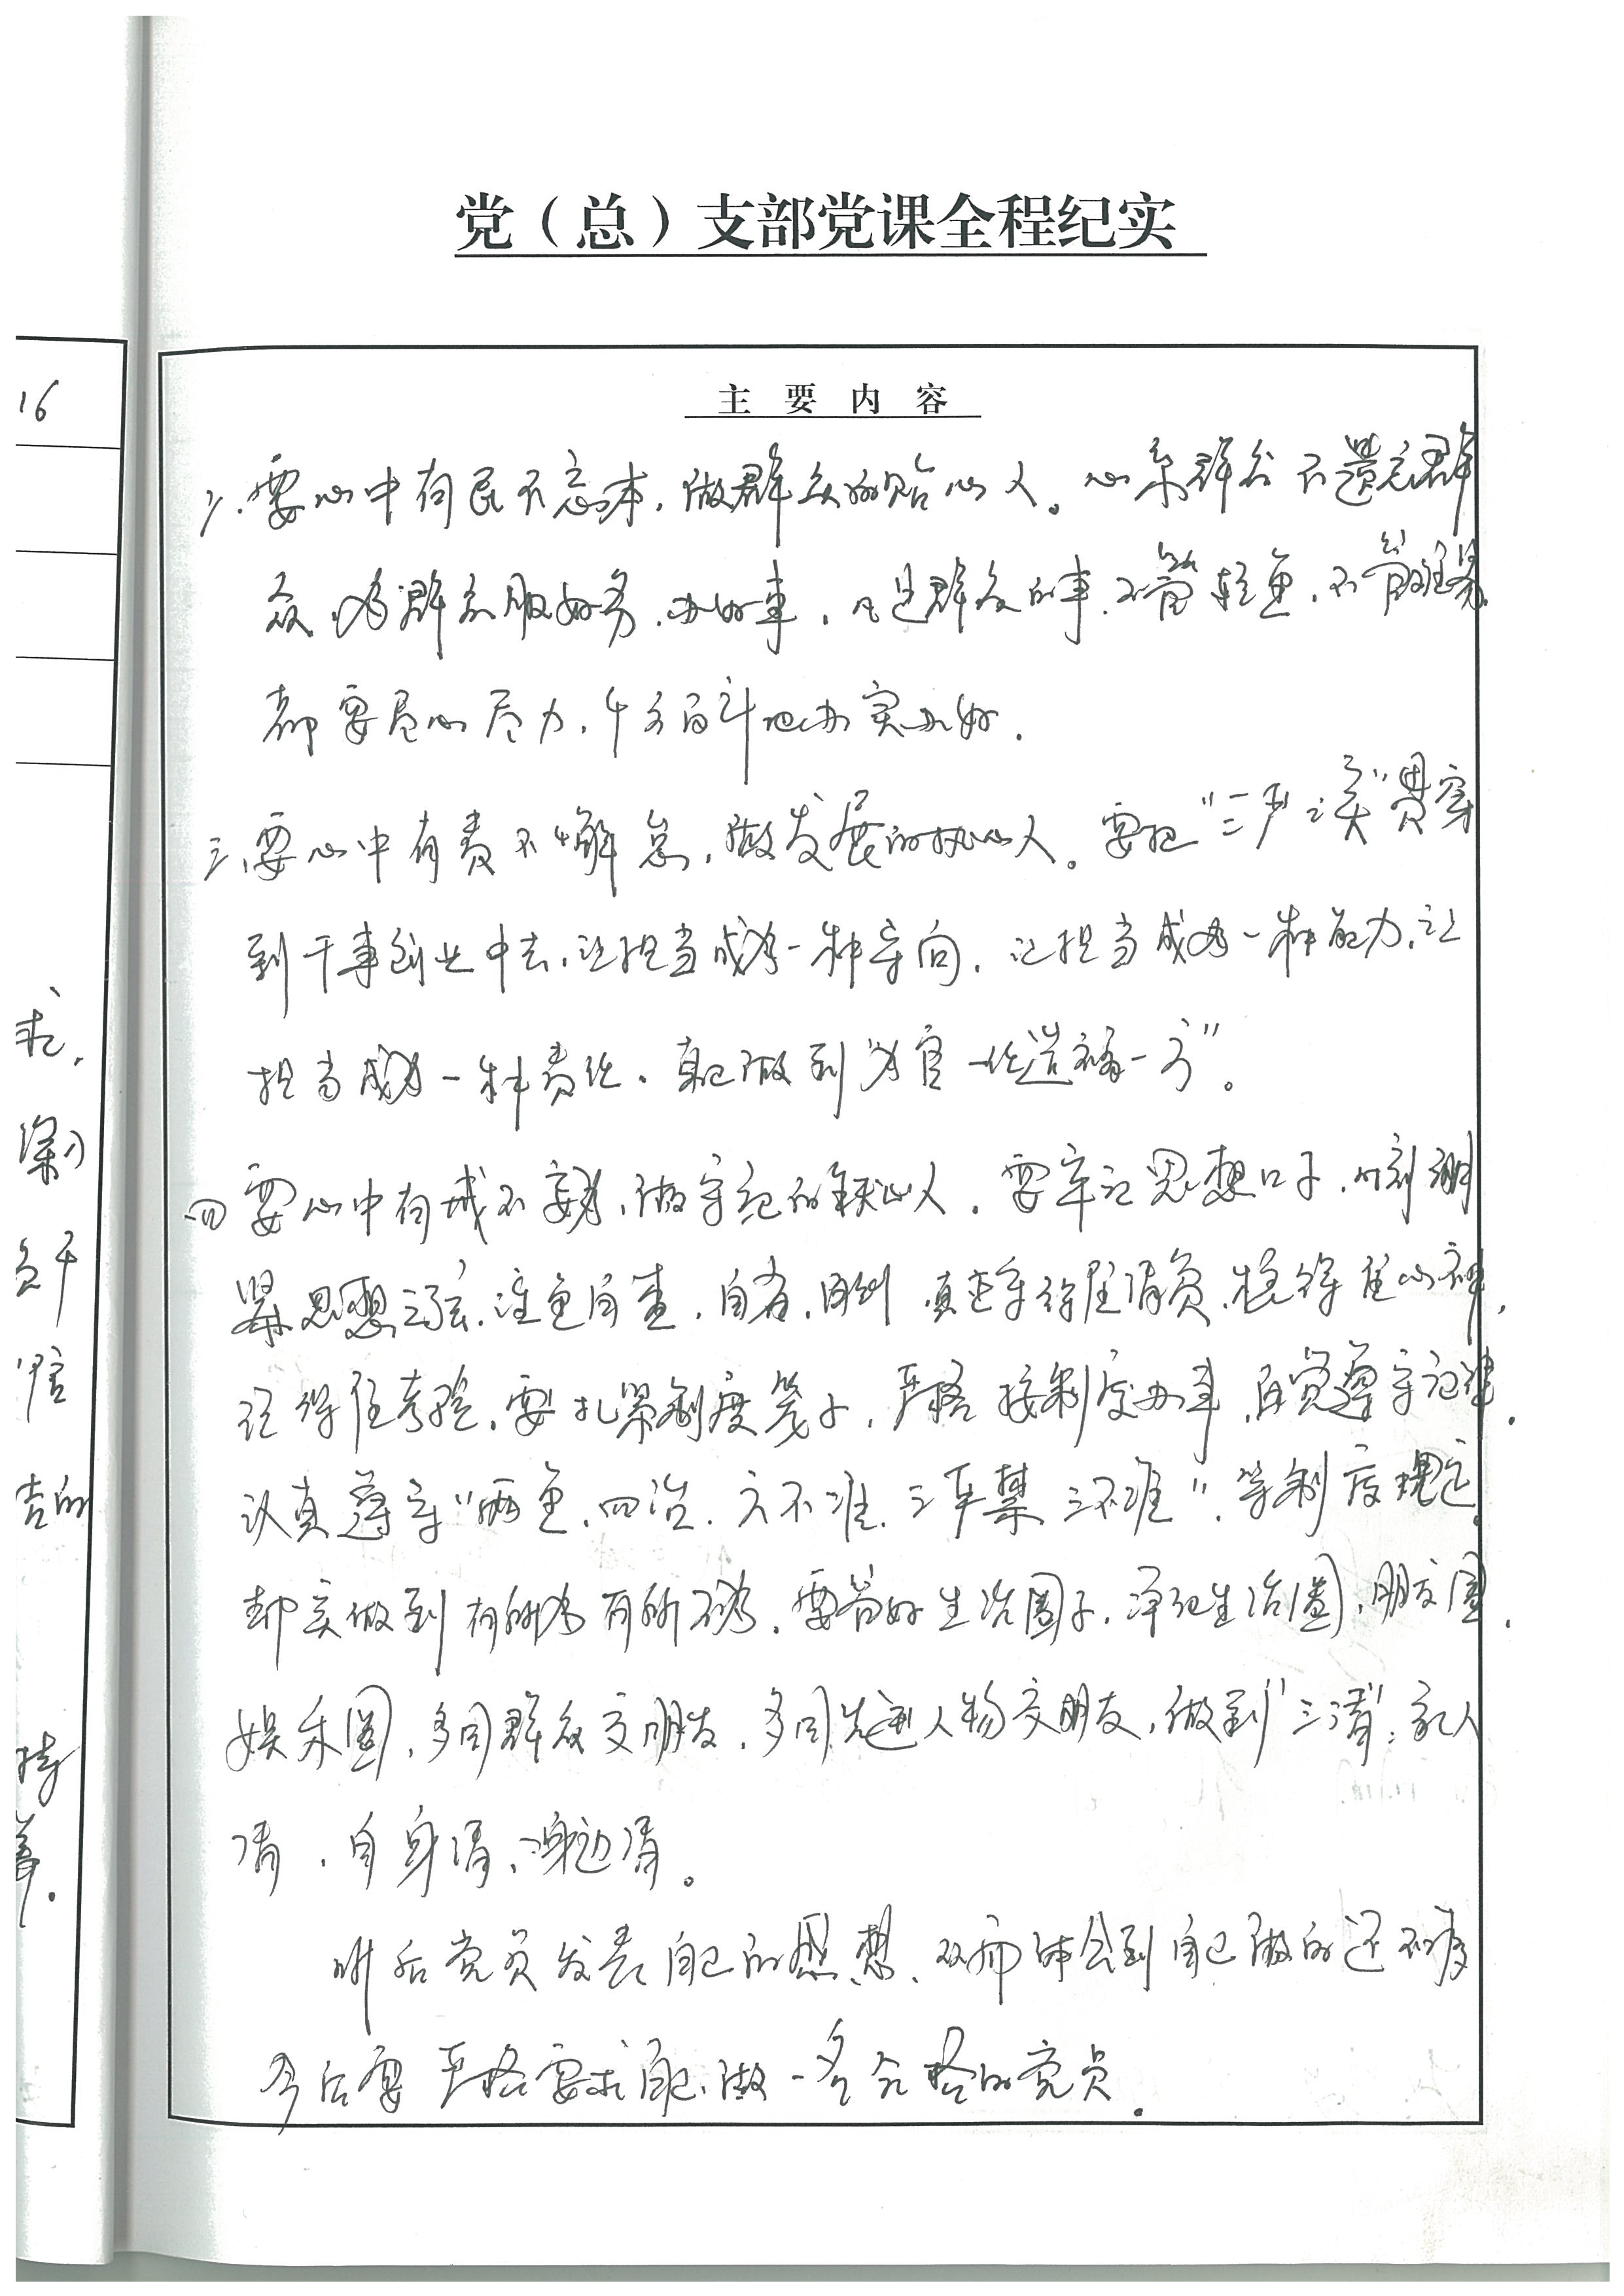 党（总）支部党课全程纪实
主要内容
二、要心中有民不忘本，做群众的贴心人。心系群众不遗忘群
众，为群众服好务，办好事，凡是群众的事，不管轻重，不管难易
都要尽心尽力，千方百计地办实办好。
三、要心中有责不懈怠，做发展的热心人。要把“三严三实”贯穿
到干事创业中去，让担当成为一种导向，让担当成为一种能力，让
担当成为一种责任。真正做到“为官一任造福一方”。
四要心中有戒不妄为，做守纪的铁心人。要牢记思想口子，时刻绷
紧思想之弦，注重自查，自省，自纠 真正守得住清贫，稳得住心神，
经得住考验，要扎紧制度笼子，严格按制度办事，自觉遵守记律，
认真遵守“两重、四治、六不准、三严禁、三不准”，等制度规定，
却实做到有所为有所不为。要管好生活圈子，净化生活圈，朋友圈，
娱乐圈，多同群众交朋友，多同先进人物交朋友，做到“三清”：家人
清，自身清，身边清。
听后党员发表自己的感想，从而体会到自己做的还不够
今后要严格要求自己，做一名合格的党员。
16
求，
员干
信
告的
持